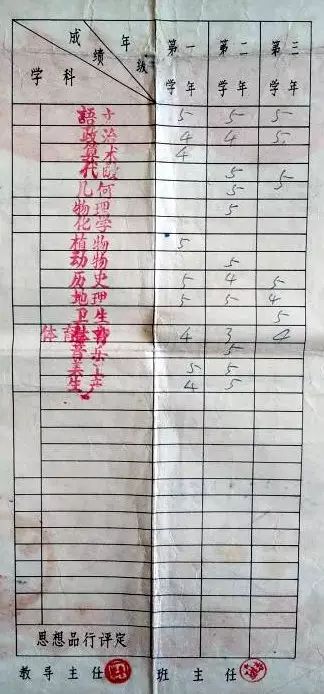 成绩 年级 学科 第一学年 第二学年 第三学年
語 5 5 5
政治 4 4 5
算术 4
代 5 5
几何 5
物理 5
化学
植物 5
动物 5
历史 5 4 5
地理 5 5 4
卫生 5
体育 4 3 4
音乐 5
5 5
生产 4 5
思想品行评定
教导主任 班主任